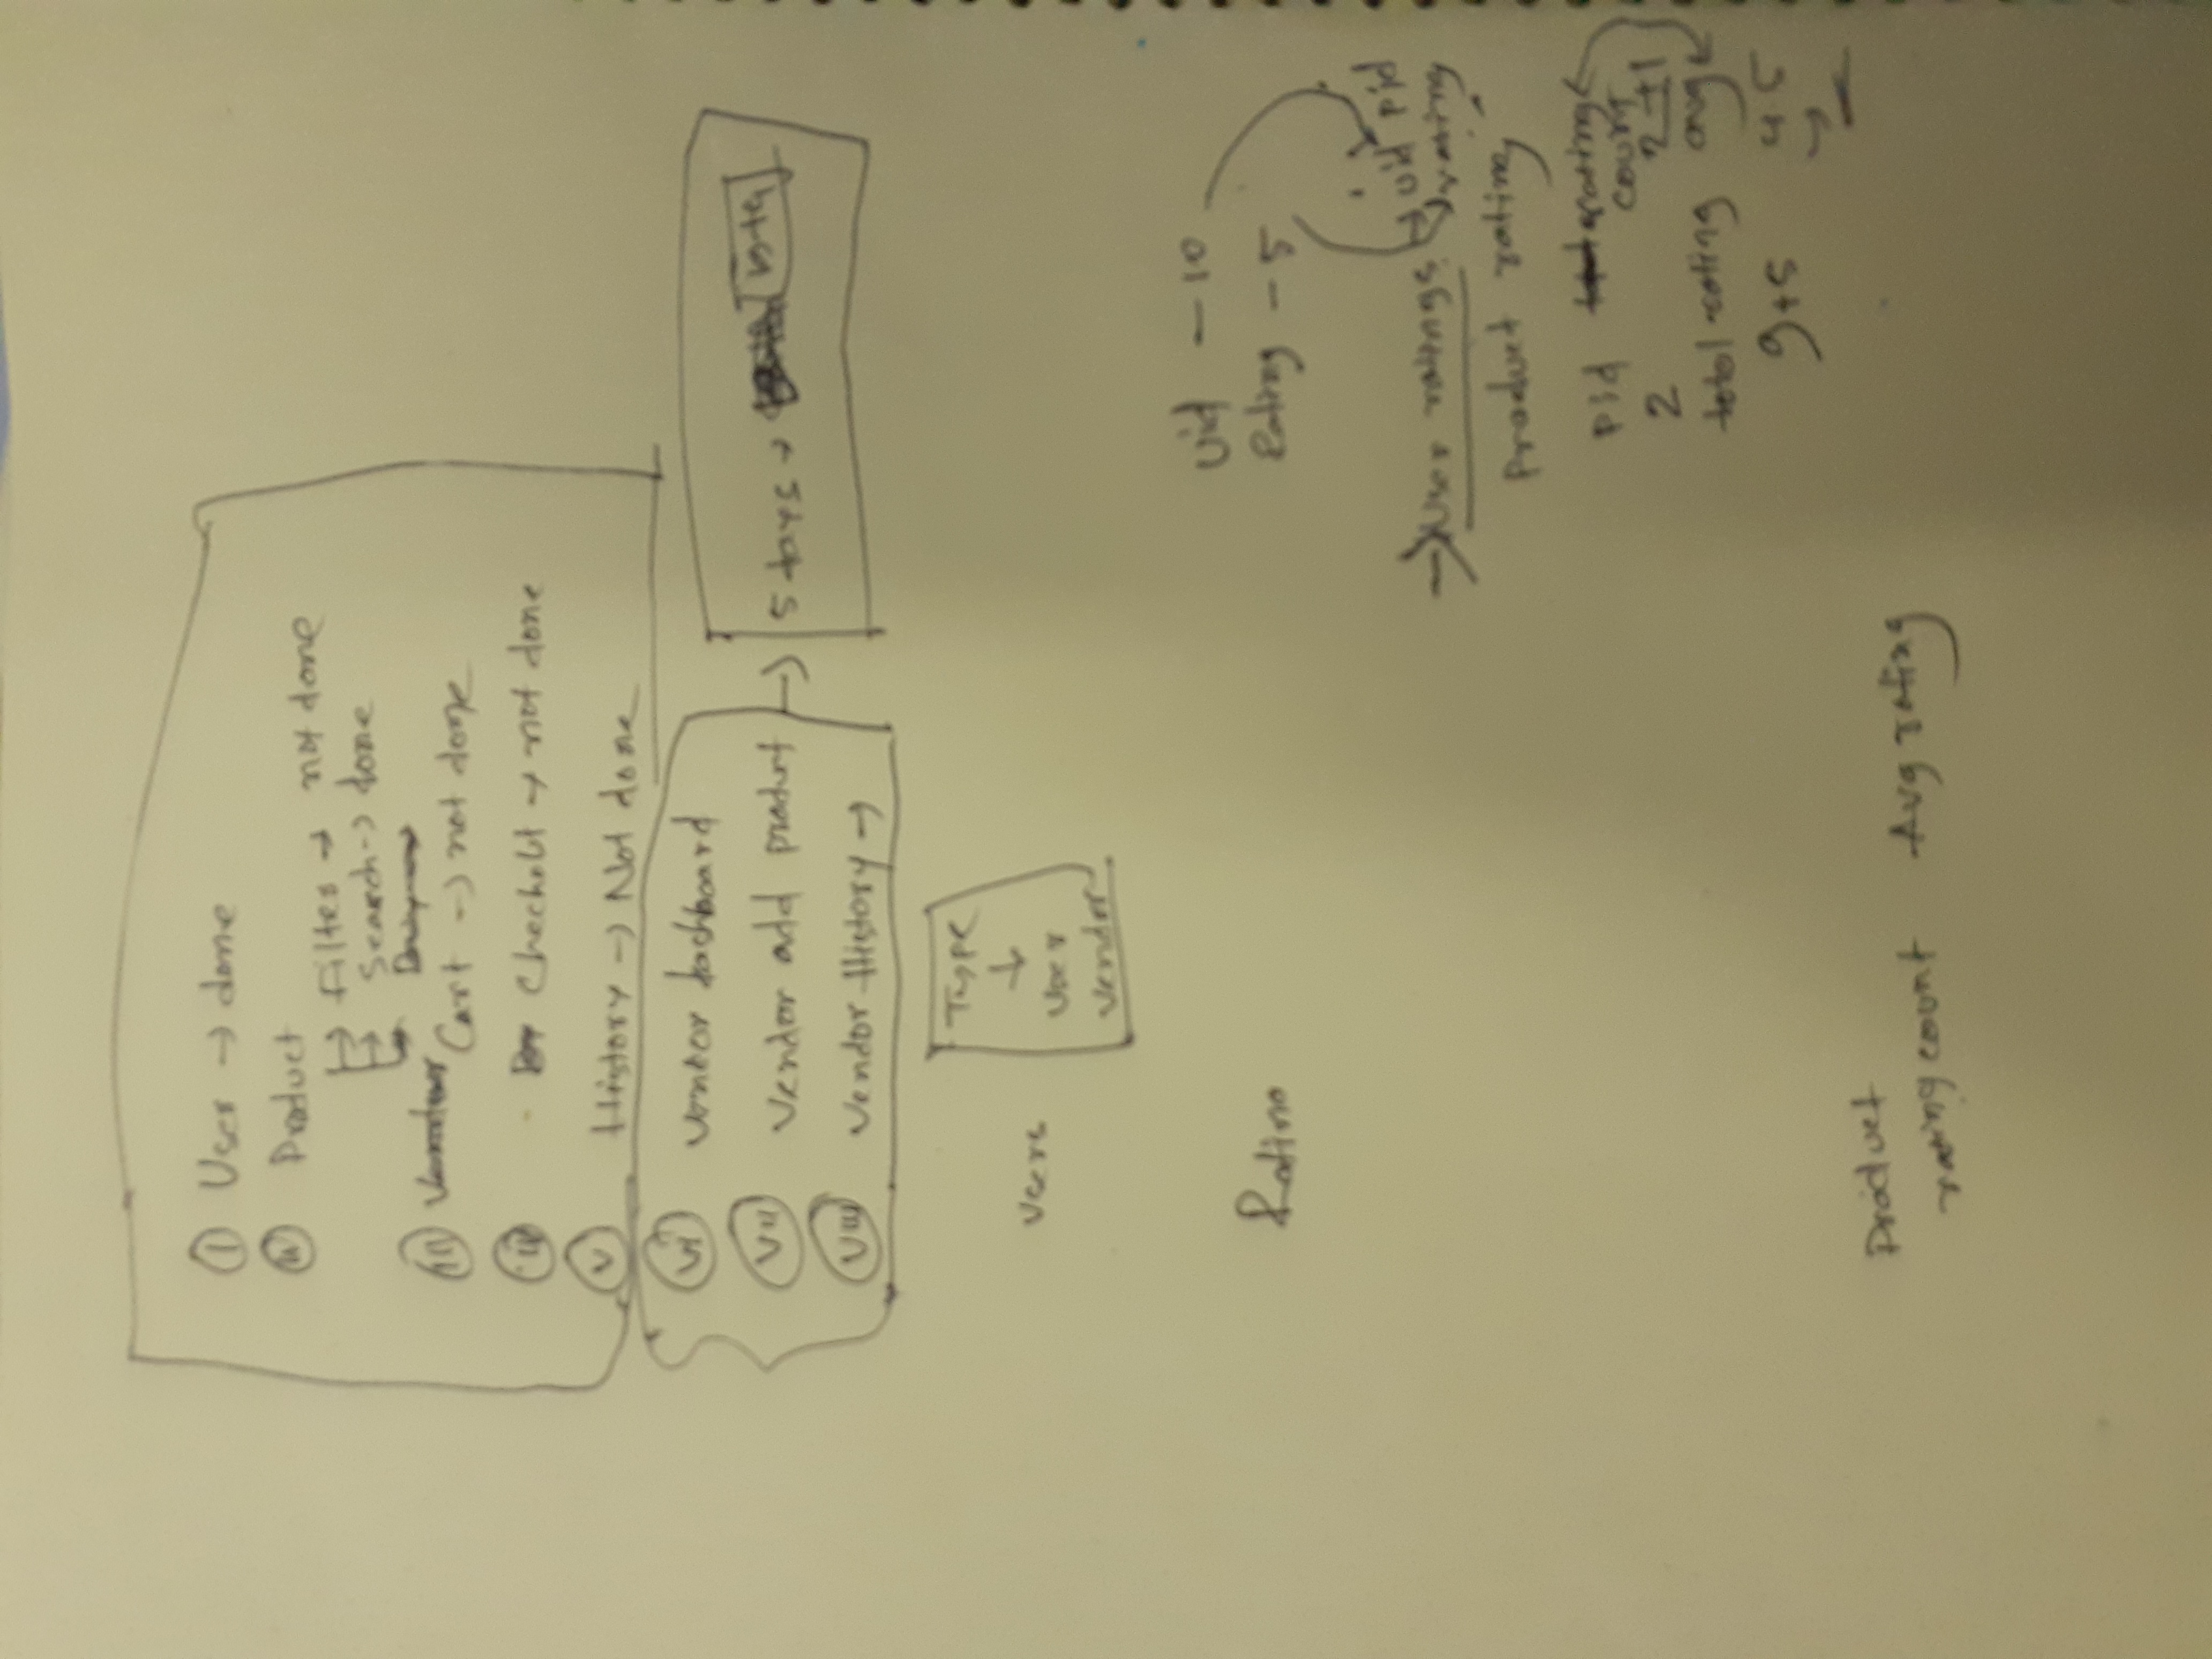 I User → done
II Product
→ Filter → not done
→ Search → done
III Cart → not done
Checkout → not done
V History → Not done
VI Vendor dashboard
VII Vendor add product → 5 days →
VIII Vendor History →
Type
↓
Users
User
Vendor
Uid — 10
Rating — 5
Rating
→ User ratings → uid pid
rating
Product rating
pid rating
count
2 2+1
total rating avg
9+5 4.5
Product
rating count Avg rating